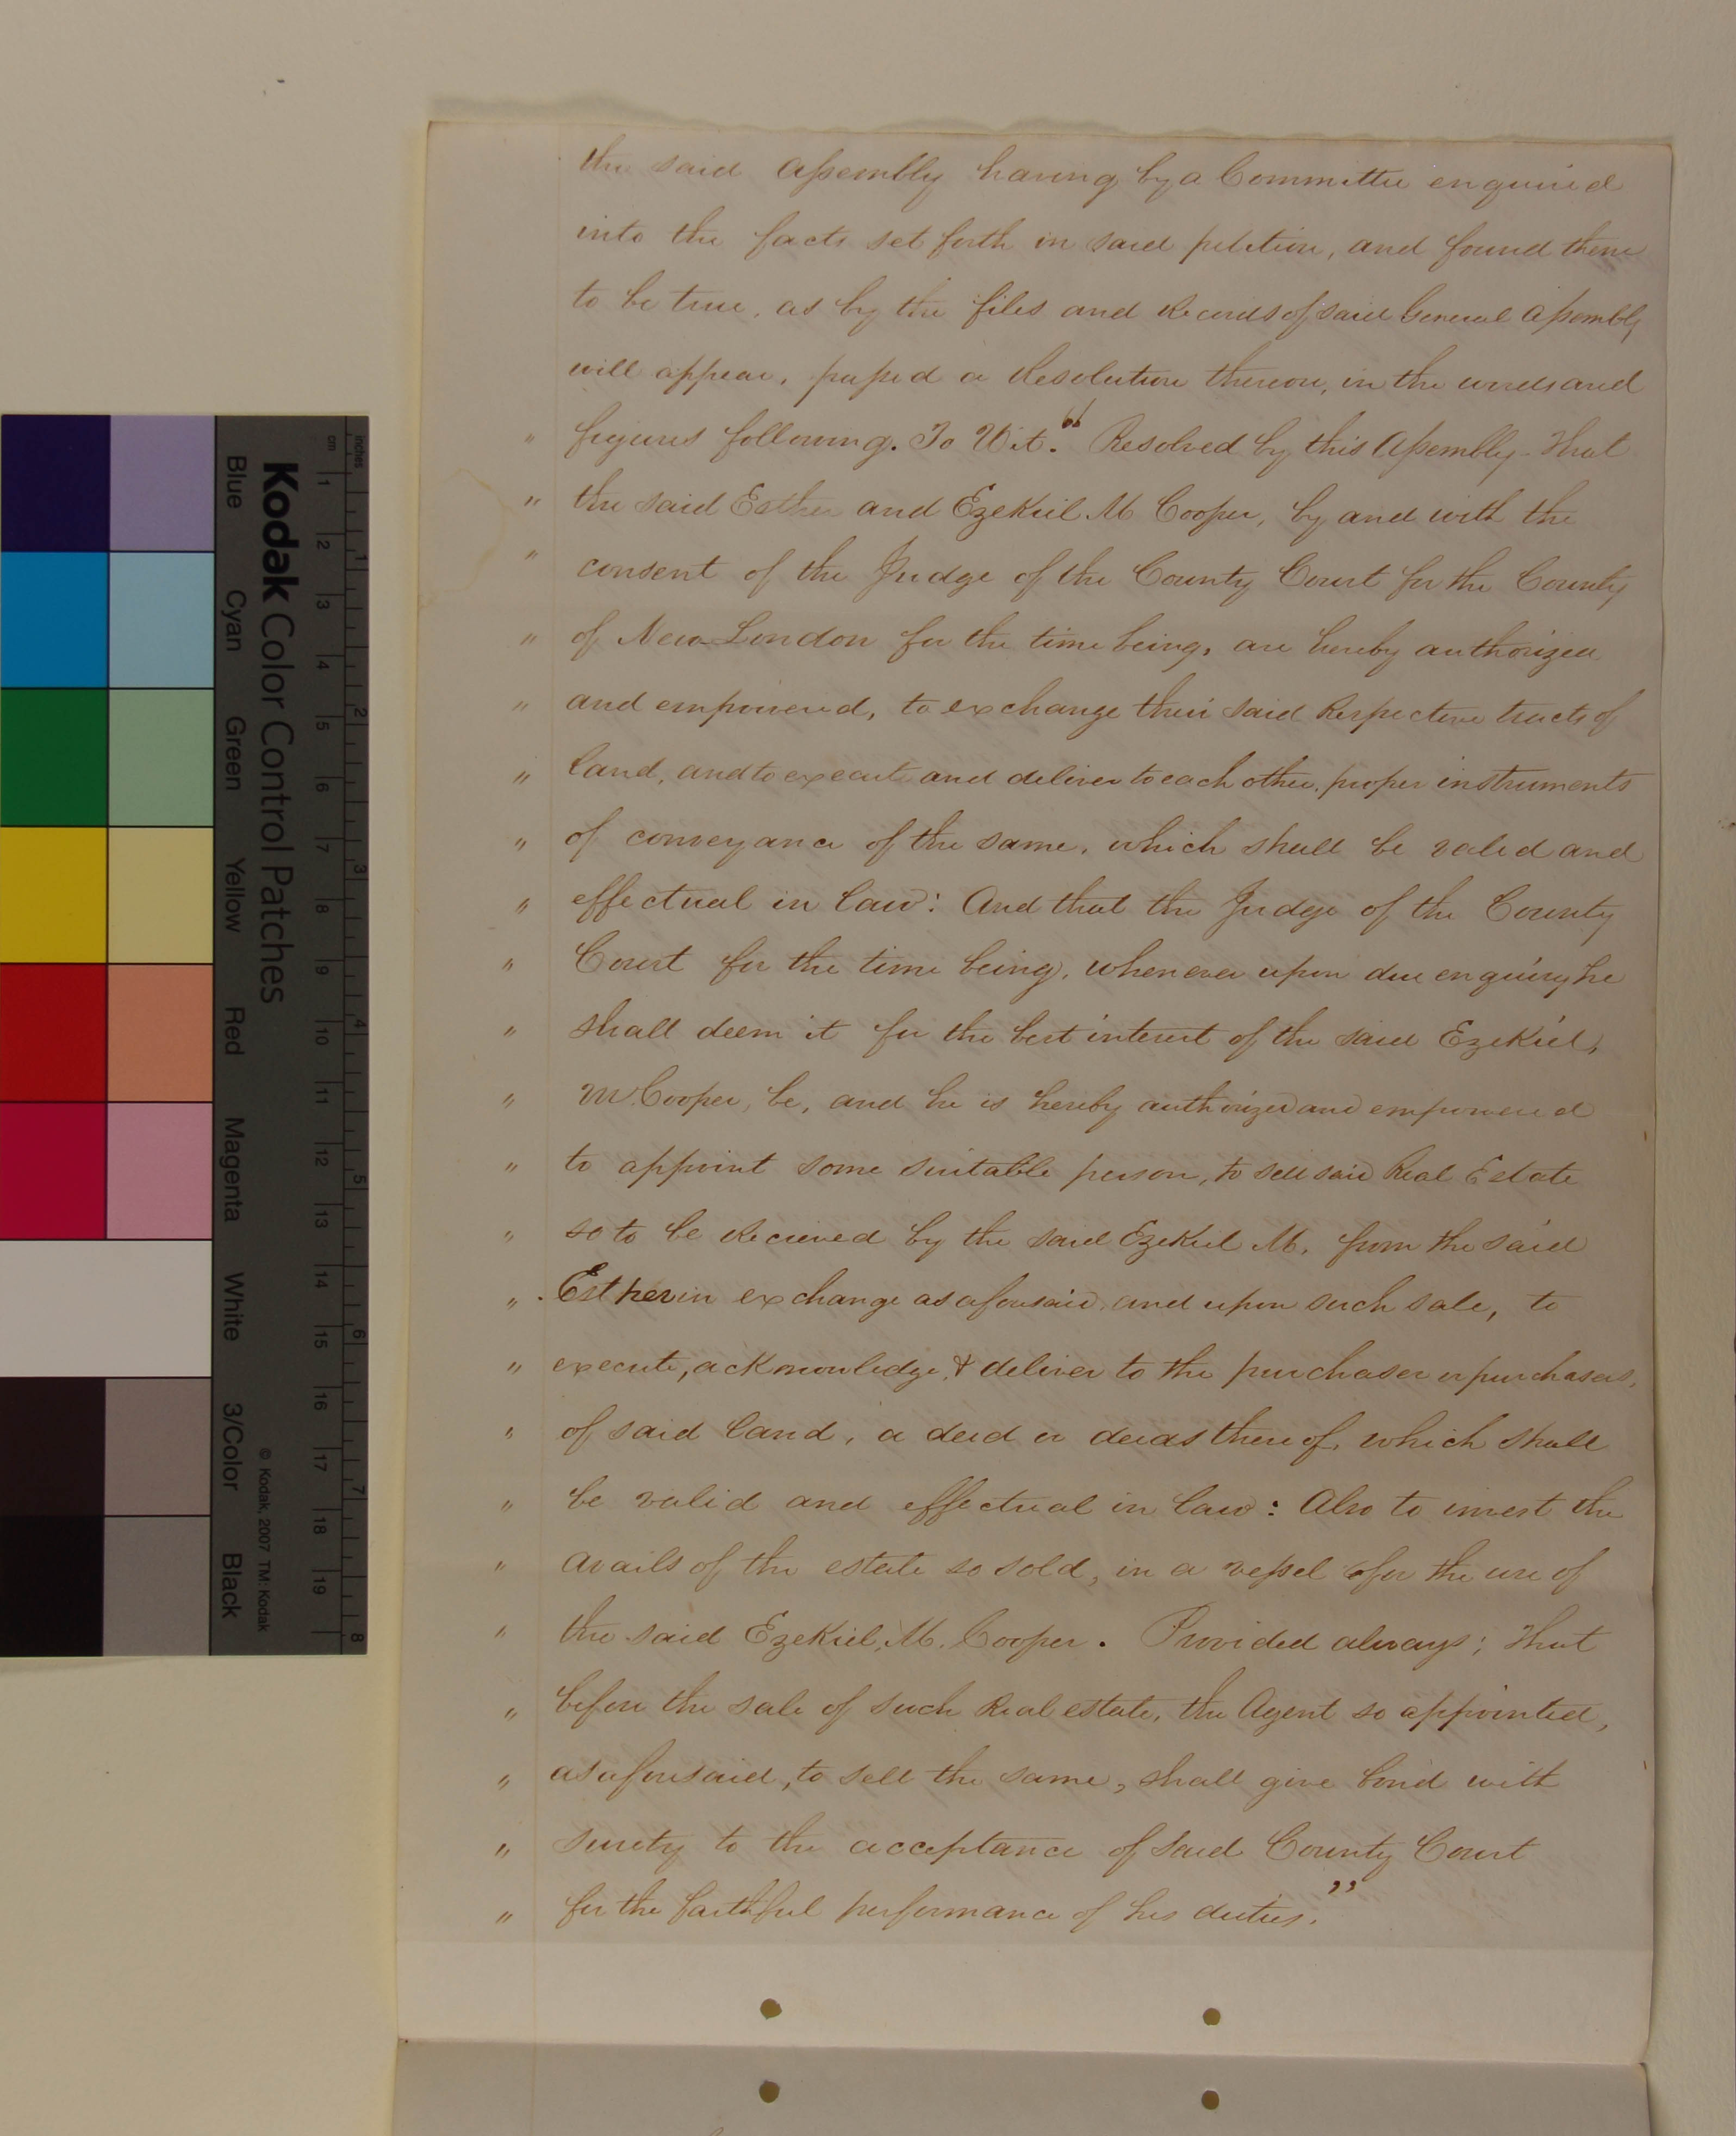 the said Assembly having by a Committee enquired
into the facts set forth in said petition, and found them
to be true, as by the files and Records of said General Assembly
will appear, passed a Resolution thereon, in the words and
" figures following. To Wit. " Resolved by this Assembly - That
" the said Esther and Ezekiel M Cooper, by and with the
" consent of the Judge of the County Court for the County
" of New London for the time being, are hereby authorized
" and empowered, to exchange their said Respective tracts of
" land, and to execute and deliver to each other, proper instruments
" of conveyance of the same, which shall be valid and
" effectual in law: And that the Judge of the County
" Court for the time being, whenever upon due enquiry he
" shall deem it for the best interest of the said Ezekiel,
" M. Cooper, be, and he is hereby authorized and empowered
" to appoint some suitable person, to sell said Real Estate
" so to be Recieved by the said Ezekiel M. from the said
" Esther in exchange as aforesaid, and upon such sale, to
" execute, acknowledge, & deliver to the purchaser or purchasers,
" of said land, a deed or deeds thereof, which shall
" be valid and effectual in law: Also to invest the
" avails of the estate so sold, in a vessel for the use of
" the said Ezekiel, M. Cooper. Provided always; That
" before the sale of such Real estate, the Agent so appointed,
" as aforesaid, to sell the same, shall give bond with
" surety to the acceptance of said County Court
" for the faithful performance of his duties."
Kodak Color Control Patches
Blue Cyan Green Yellow Red Magenta White 3/Color Black
© Kodak, 2007 TM: Kodak
inches 1 2 3 4 5 6 7 8
cm 1 2 3 4 5 6 7 8 9 10 11 12 13 14 15 16 17 18 19